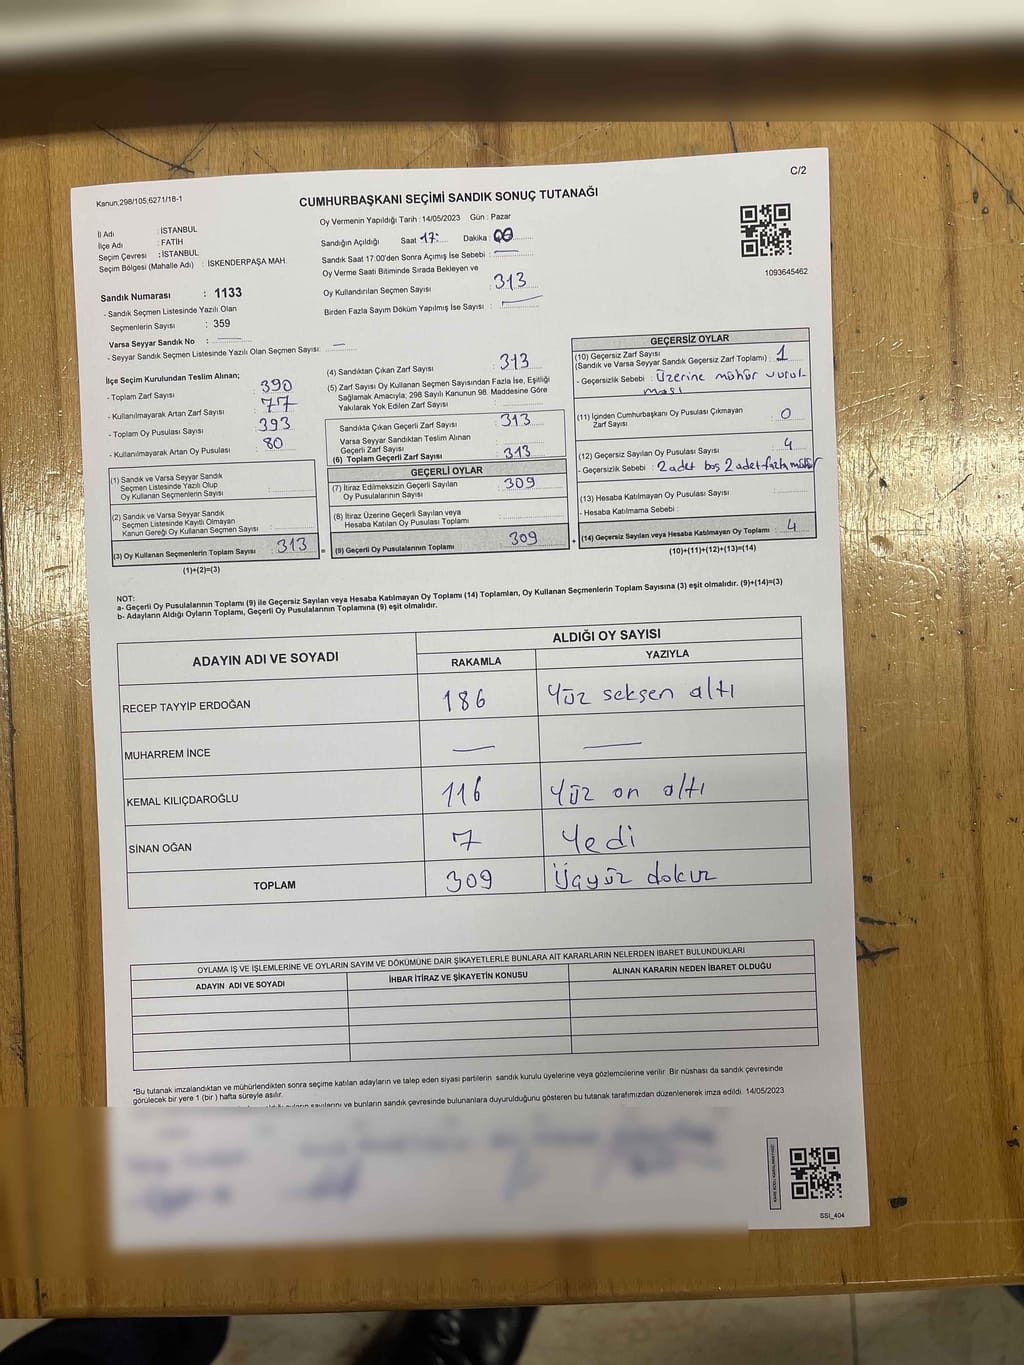 C/2
Kanun;298/105;6271/18-1
CUMHURBAŞKANI SEÇİMİ SANDIK SONUÇ TUTANAĞI
İl Adı : İSTANBUL
İlçe Adı : FATİH
Seçim Çevresi : İSTANBUL
Seçim Bölgesi (Mahalle Adı) : İSKENDERPAŞA MAH.
Sandık Numarası : 1133
- Sandık Seçmen Listesinde Yazılı Olan
Seçmenlerin Sayısı : 359
Varsa Seyyar Sandık No : —
- Seyyar Sandık Seçmen Listesinde Yazılı Olan Seçmen Sayısı: —
Oy Vermenin Yapıldığı Tarih : 14/05/2023 Gün : Pazar
Sandığın Açıldığı Saat 17: Dakika : 00
Sandık Saat 17:00'den Sonra Açımış İse Sebebi : —
Oy Verme Saati Bitiminde Sırada Bekleyen ve
Oy Kullandırılan Seçmen Sayısı : 313
Birden Fazla Sayım Döküm Yapılmış İse Sayısı : —
1093645462
İlçe Seçim Kurulundan Teslim Alınan;
- Toplam Zarf Sayısı 390
- Kullanılmayarak Artan Zarf Sayısı : 77
- Toplam Oy Pusulası Sayısı 393
- Kullanılmayarak Artan Oy Pusulası : 80
(1) Sandık ve Varsa Seyyar Sandık
Seçmen Listesinde Yazılı Olup
Oy Kullanan Seçmenlerin Sayısı :
(2) Sandık ve Varsa Seyyar Sandık
Seçmen Listesinde Kayıtlı Olmayan
Kanun Gereği Oy Kullanan Seçmen Sayısı :
(3) Oy Kullanan Seçmenlerin Toplam Sayısı : 313
(1)+(2)=(3)
(4) Sandıktan Çıkan Zarf Sayısı : 313
(5) Zarf Sayısı Oy Kullanan Seçmen Sayısından Fazla İse, Eşitliği
Sağlamak Amacıyla; 298 Sayılı Kanunun 98. Maddesine Göre
Yakılarak Yok Edilen Zarf Sayısı :
Sandıkta Çıkan Geçerli Zarf Sayısı : 313
Varsa Seyyar Sandıktan Teslim Alınan
Geçerli Zarf Sayısı :
(6) Toplam Geçerli Zarf Sayısı : 313
GEÇERLİ OYLAR
(7) İtiraz Edilmeksizin Geçerli Sayılan
Oy Pusulalarının Sayısı : 309
(8) İtiraz Üzerine Geçerli Sayılan veya
Hesaba Katılan Oy Pusulası Toplamı :
= (9) Geçerli Oy Pusulalarının Toplamı : 309
GEÇERSİZ OYLAR
(10) Geçersiz Zarf Sayısı
(Sandık ve Varsa Seyyar Sandık Geçersiz Zarf Toplamı) : 1
- Geçersizlik Sebebi : Üzerine mühür vurul-
ması
(11) İçinden Cumhurbaşkanı Oy Pusulası Çıkmayan
Zarf Sayısı : 0
(12) Geçersiz Sayılan Oy Pusulası Sayısı : 4
- Geçersizlik Sebebi : 2 adet boş 2 adet fazla mühür
(13) Hesaba Katılmayan Oy Pusulası Sayısı :
- Hesaba Katılmama Sebebi :
+ (14) Geçersiz Sayılan veya Hesaba Katılmayan Oy Toplamı : 4
(10)+(11)+(12)+(13)=(14)
NOT:
a- Geçerli Oy Pusulalarının Toplamı (9) ile Geçersiz Sayılan veya Hesaba Katılmayan Oy Toplamı (14) Toplamları, Oy Kullanan Seçmenlerin Toplam Sayısına (3) eşit olmalıdır. (9)+(14)=(3)
b- Adayların Aldığı Oyların Toplamı, Geçerli Oy Pusulalarının Toplamına (9) eşit olmalıdır.
ADAYIN ADI VE SOYADI ALDIĞI OY SAYISI
RAKAMLA YAZIYLA
RECEP TAYYİP ERDOĞAN 186 Yüz seksen altı
MUHARREM İNCE — —
KEMAL KILIÇDAROĞLU 116 Yüz on altı
SİNAN OĞAN 7 Yedi
TOPLAM 309 Üçyüz dokuz
OYLAMA İŞ VE İŞLEMLERİNE VE OYLARIN SAYIM VE DÖKÜMÜNE DAİR ŞİKAYETLERLE BUNLARA AİT KARARLARIN NELERDEN İBARET BULUNDUKLARI
ADAYIN ADI VE SOYADI İHBAR İTİRAZ VE ŞİKAYETİN KONUSU ALINAN KARARIN NEDEN İBARET OLDUĞU
*Bu tutanak imzalandıktan ve mühürlendikten sonra seçime katılan adayların ve talep eden siyasi partilerin sandık kurulu üyelerine veya gözlemcilerine verilir. Bir nüshası da sandık çevresinde
görülecek bir yere 1 (bir ) hafta süreyle asılır.
sayılarını ve bunların sandık çevresinde bulunanlara duyurulduğunu gösteren bu tutanak tarafımızdan düzenlenerek imza edildi. 14/05/2023
SSİ_404